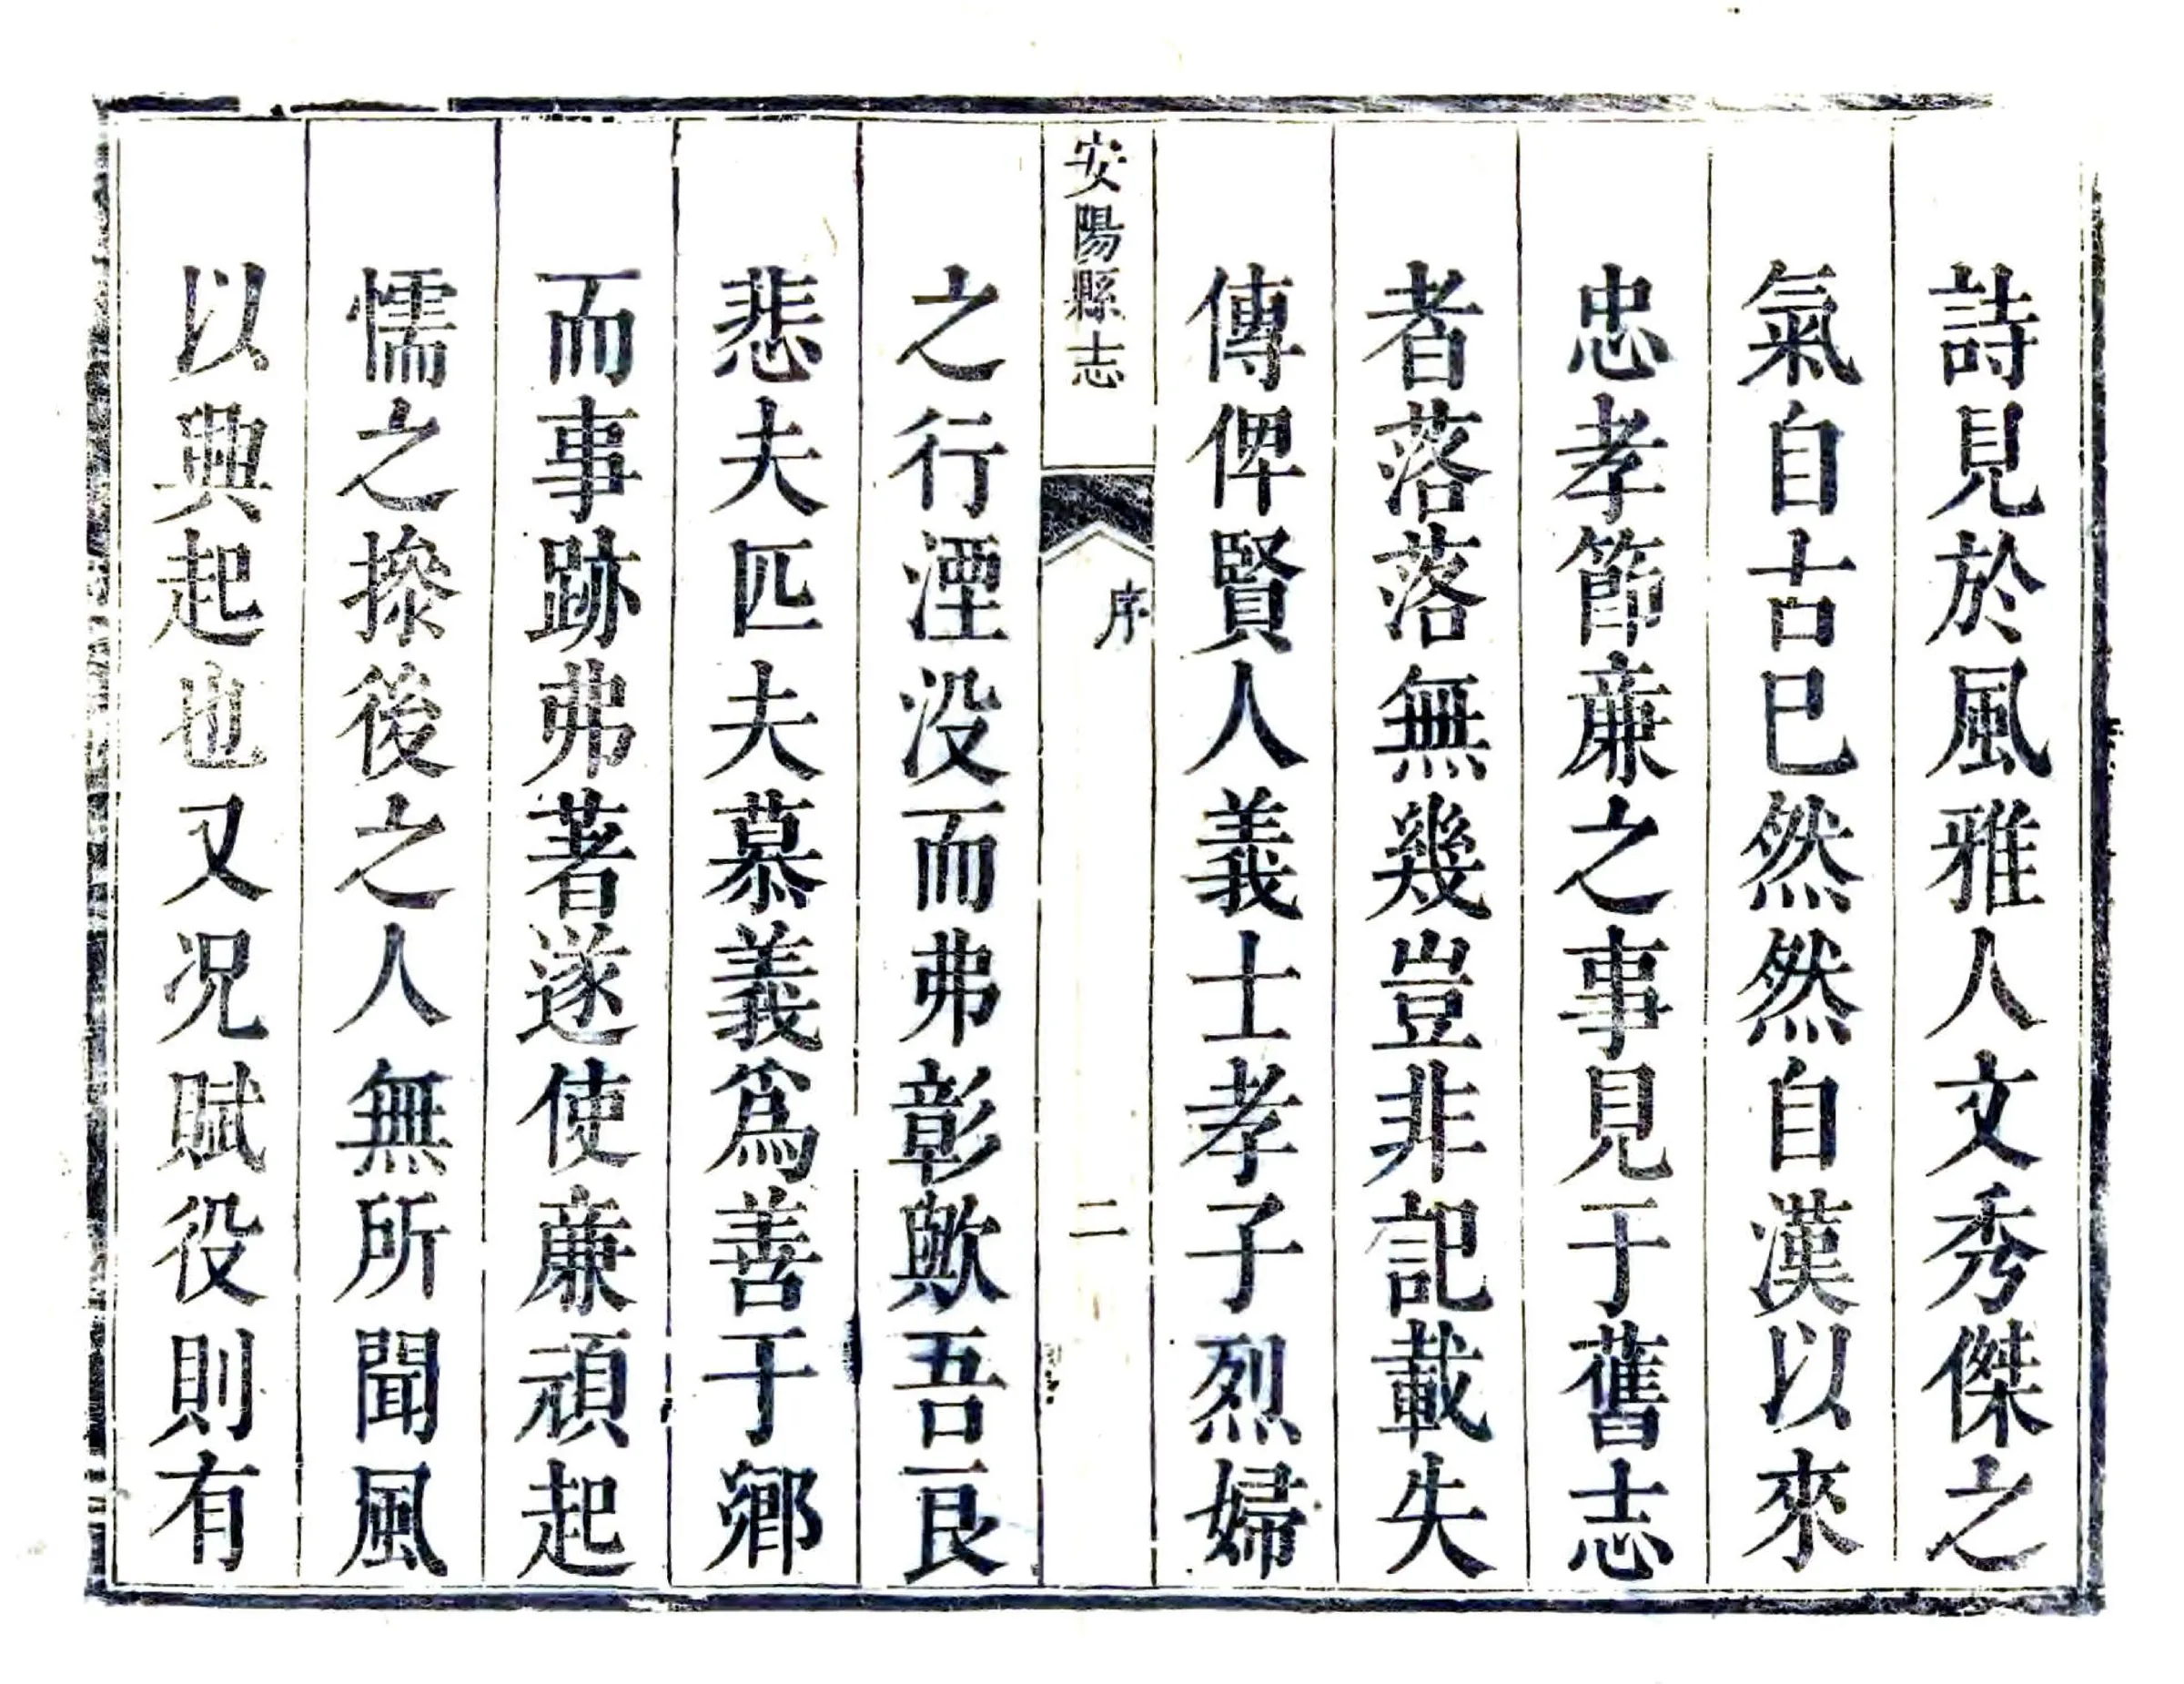 詩見於風雅人文秀傑之
氣自古巳然然自漢以來
忠孝節亷之事見于舊志
者落落無幾豈非記載失
傳俾賢人義士孝子烈婦
安陽縣志
序
二
之行湮没而弗彰歟吾一艮
悲夫匹夫慕義爲善于鄉
而事跡弗著遂使亷頑起
懦之摻後之人無所聞風
以興起也又况賦役則有